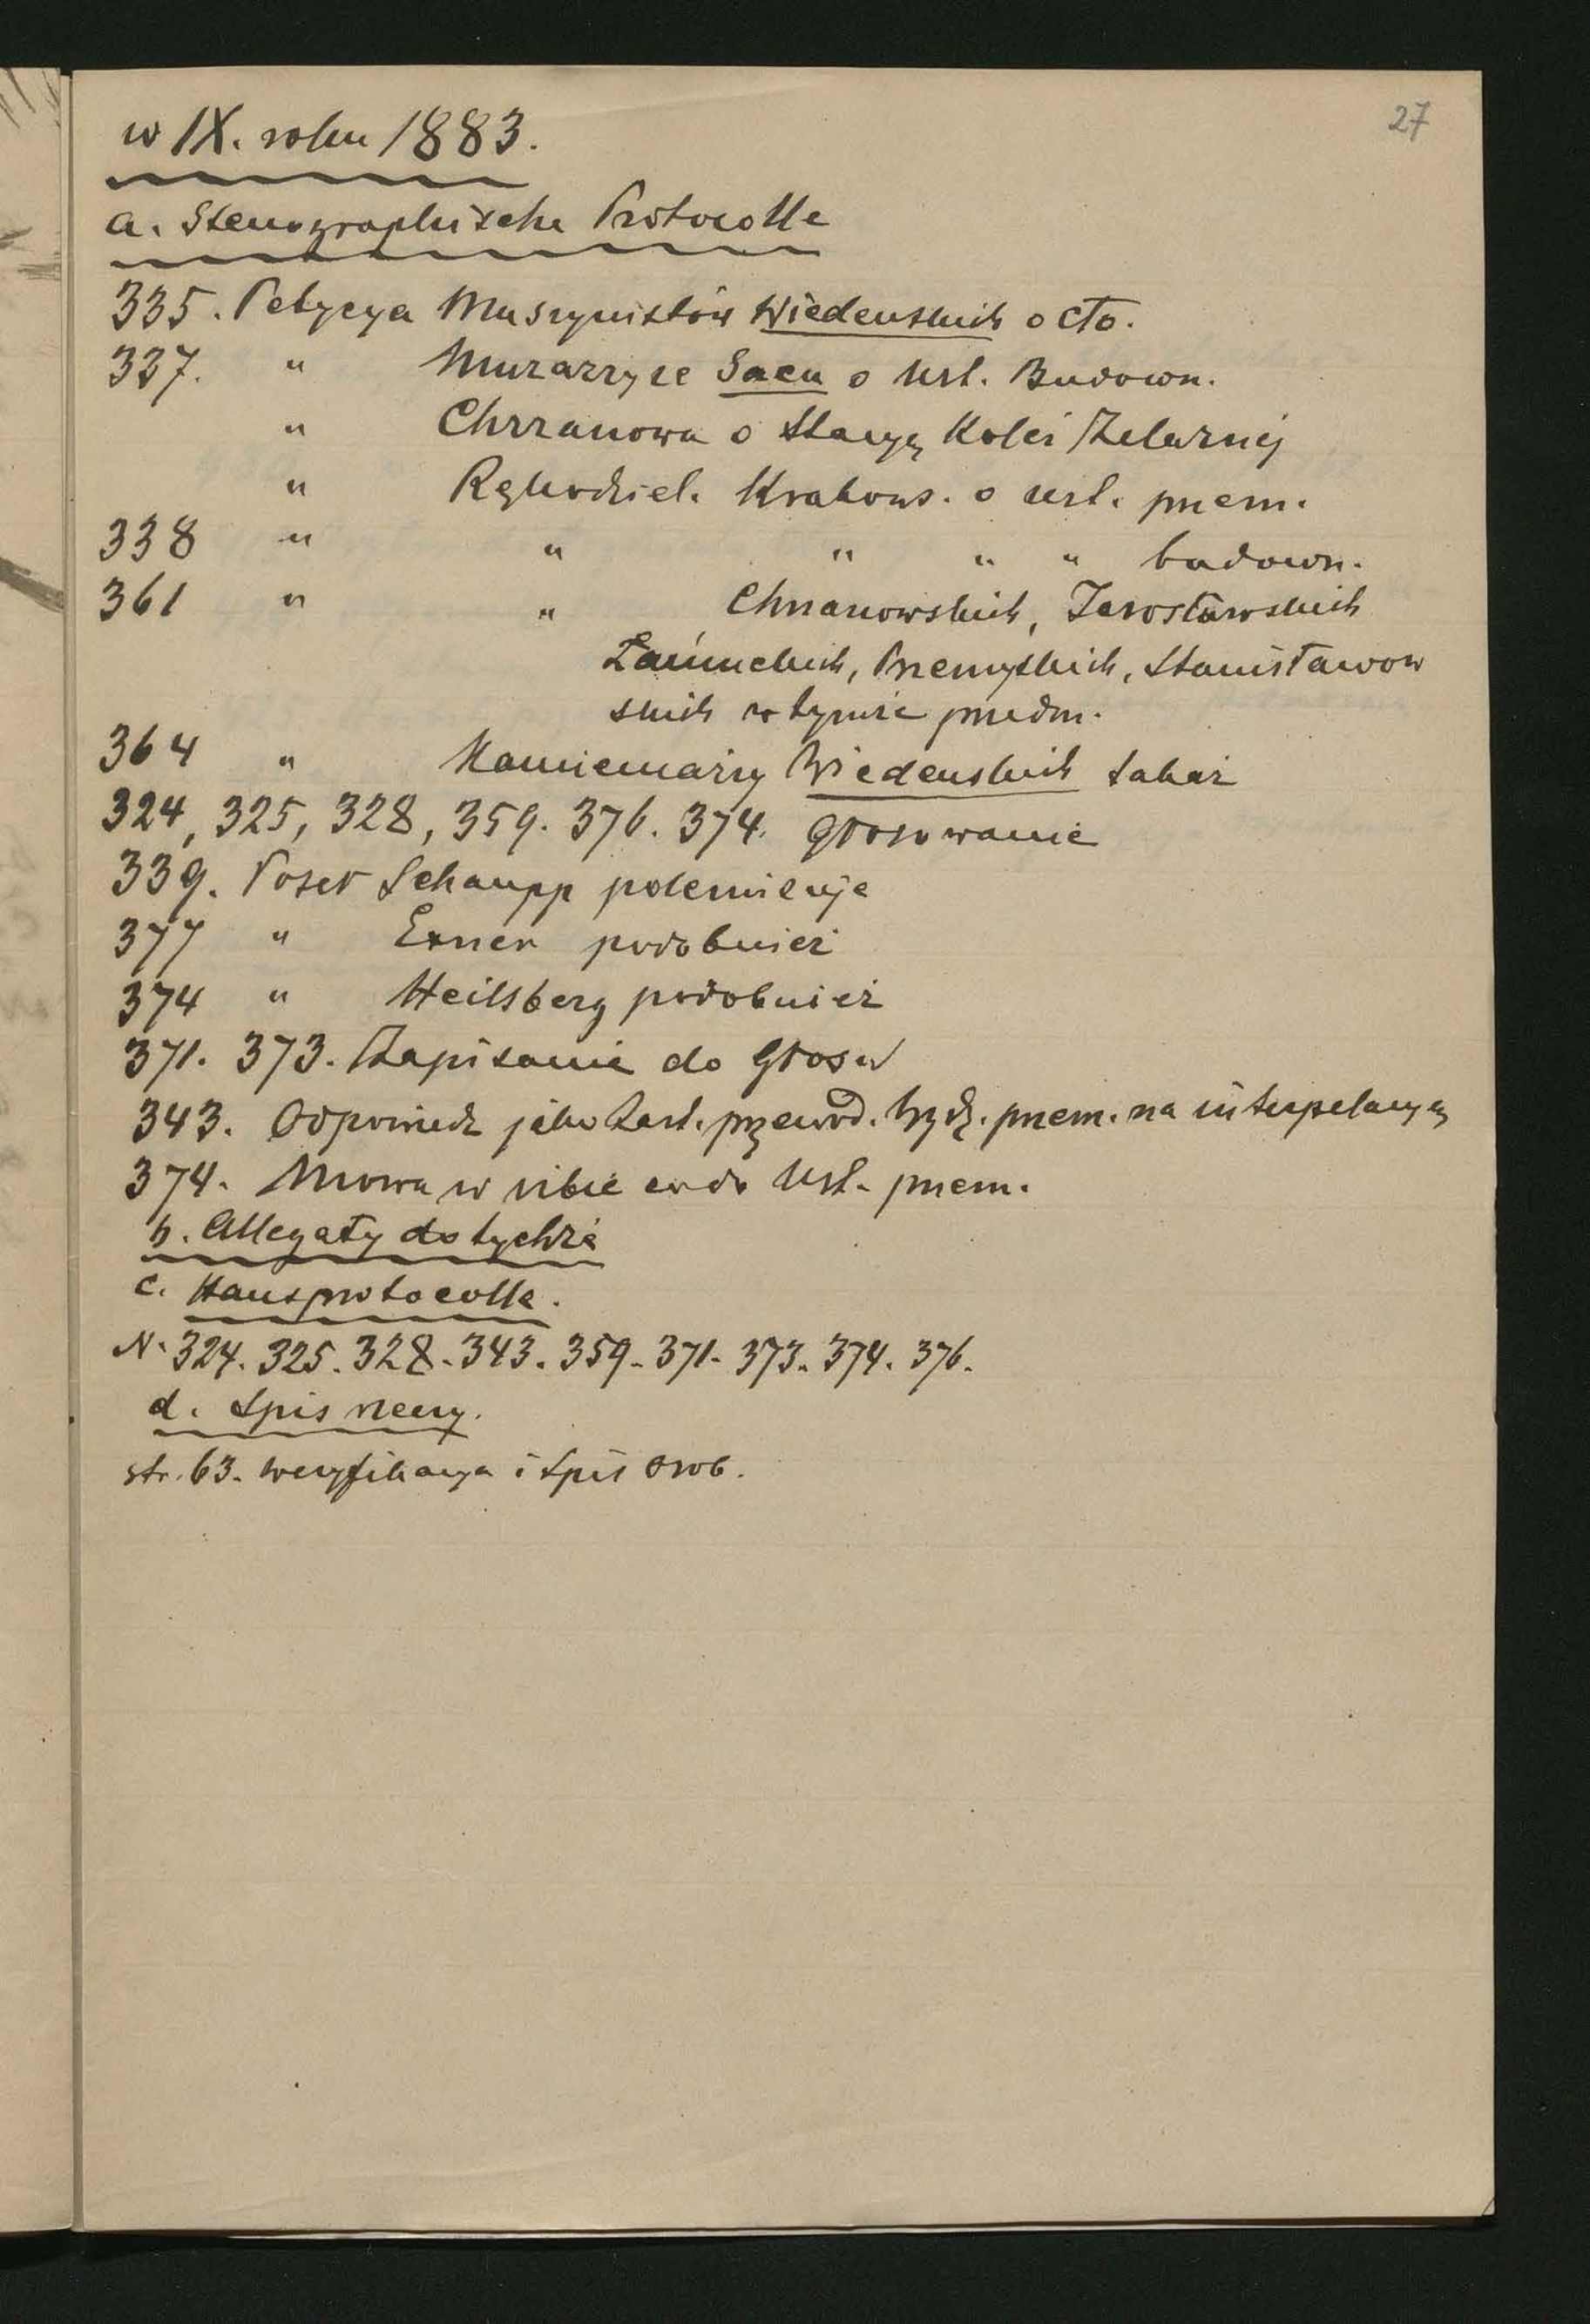 27
w IX. roku 1883.
a. Stenographische Protocolle
335. Petycya Maszynistów Wiedenskich o cło.
337. " Murarzy ze Sącu o Ust. Budown.
" Chrzanowa o Stacyę Kolei Żelaznéj
" Rękodziel. Krakows. o ust. przem.
338 " " " " " budown.
361 " " Chrzanowskich, Jarosławskich
Łańcuckich, Przemyskich, Stanisławow
skich w tymże przedm.
364 " Kamieniarzy Wiedenskich takaż
324, 325, 328, 359. 376. 374. Głosowanie
339. Poseł Schaupp polemizuje
377 " Exner podobnież
374 " Heilsberg podobnież
371. 373. Zapisanie do Głosu
343. Odpowiedz jako Zast. przewod. Wydz. przem. na interpelacyę
374. Mowa w izbie co do Ust. przem.
b. Allegaty do tychże
c. Hausprotocolle.
N. 324. 325. 328. 343. 359. 371. 373. 374. 376.
d. Spis rzeczy.
str. 63. weryfikacya i Spis Osob.